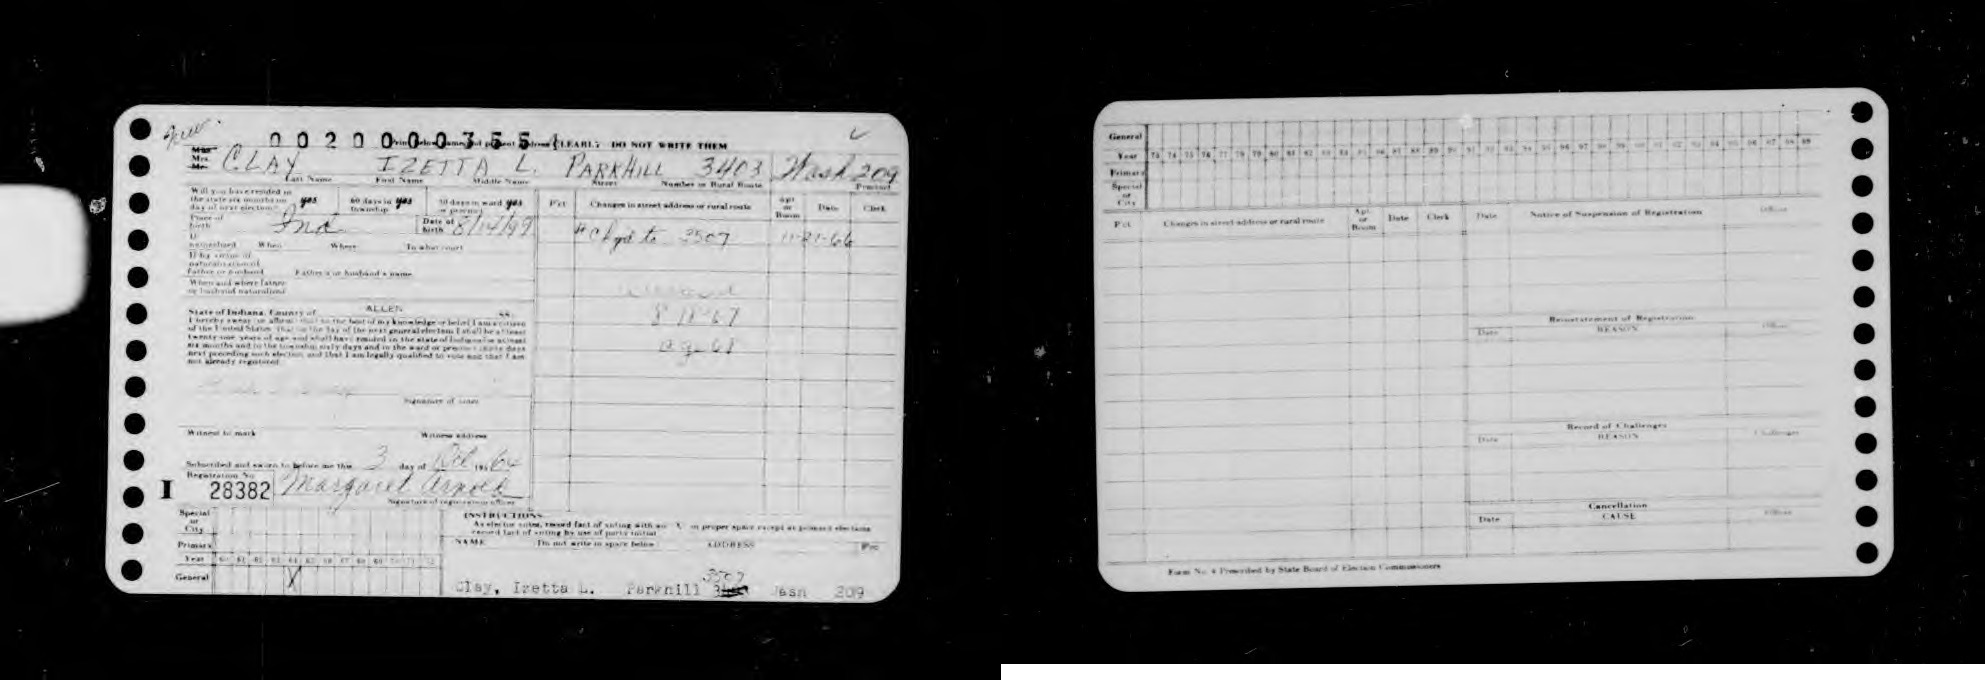 New.
0020000355
Print Below Name and present address CLEARLY DO NOT WRITE THEM
Miss
Mrs. CLAY IZETTA L. PARKHILL 3403 Wash 209
Mr.
Last Name First Name Middle Name Street Number or Rural Route Precinct
Will you have resided in
the state six months on yes 60 days in yes 30 days in ward yes
day of next election? township or precinct
Place of
birth Ind Date of birth 8/14/99
If
naturalized When Where In what court
If by virtue of
naturalization of
father or husband Father's or husband's name
When and where father
or husband naturalized
State of Indiana, County of ALLEN SS:
I hereby swear (or affirm) that to the best of my knowledge or belief I am a citizen
of the United States, that on the day of the next general election I shall be at least
twenty-one years of age and shall have resided in the state of Indiana for at least
six months and in the township sixty days and in the ward or precinct thirty days
next preceding such election and that I am legally qualified to vote and that I am
not already registered.
Signature of voter
Witness to mark Witness address
Subscribed and sworn to before me this 3 day of Oct 1964
Registration No.
I 28382 Margaret Arnold
Signature of registration officer
Pct Changes in street address or rural route Apt or Room Date Clerk
Chgd to 3507 11-21-66
8-18-67
Special
or
City
Primary
Year 60 61 62 63 64 65 66 67 68 69 70 71 72
General X
INSTRUCTIONS
As elector votes, record fact of voting with an X in proper space except at primary elections
record fact of voting by use of party initial
NAME Do not write in space below ADDRESS Pre
3507
Clay, Izetta L. Parkhill Wash 209
General
Year 73 74 75 76 77 78 79 80 81 82 83 84 85 86 87 88 89 90 91 92 93 94 95 96 97 98
Primary
Special
or
City
Pct Changes in street address or rural route Apt. or Room Date Clerk
Date Notice of Suspension of Registration Officer
Reinstatement of Registration
Date REASON Officer
Record of Challenges
Date REASON Challenger
Cancellation
Date CAUSE Officer
Form No. 4 Prescribed by State Board of Election Commissioners